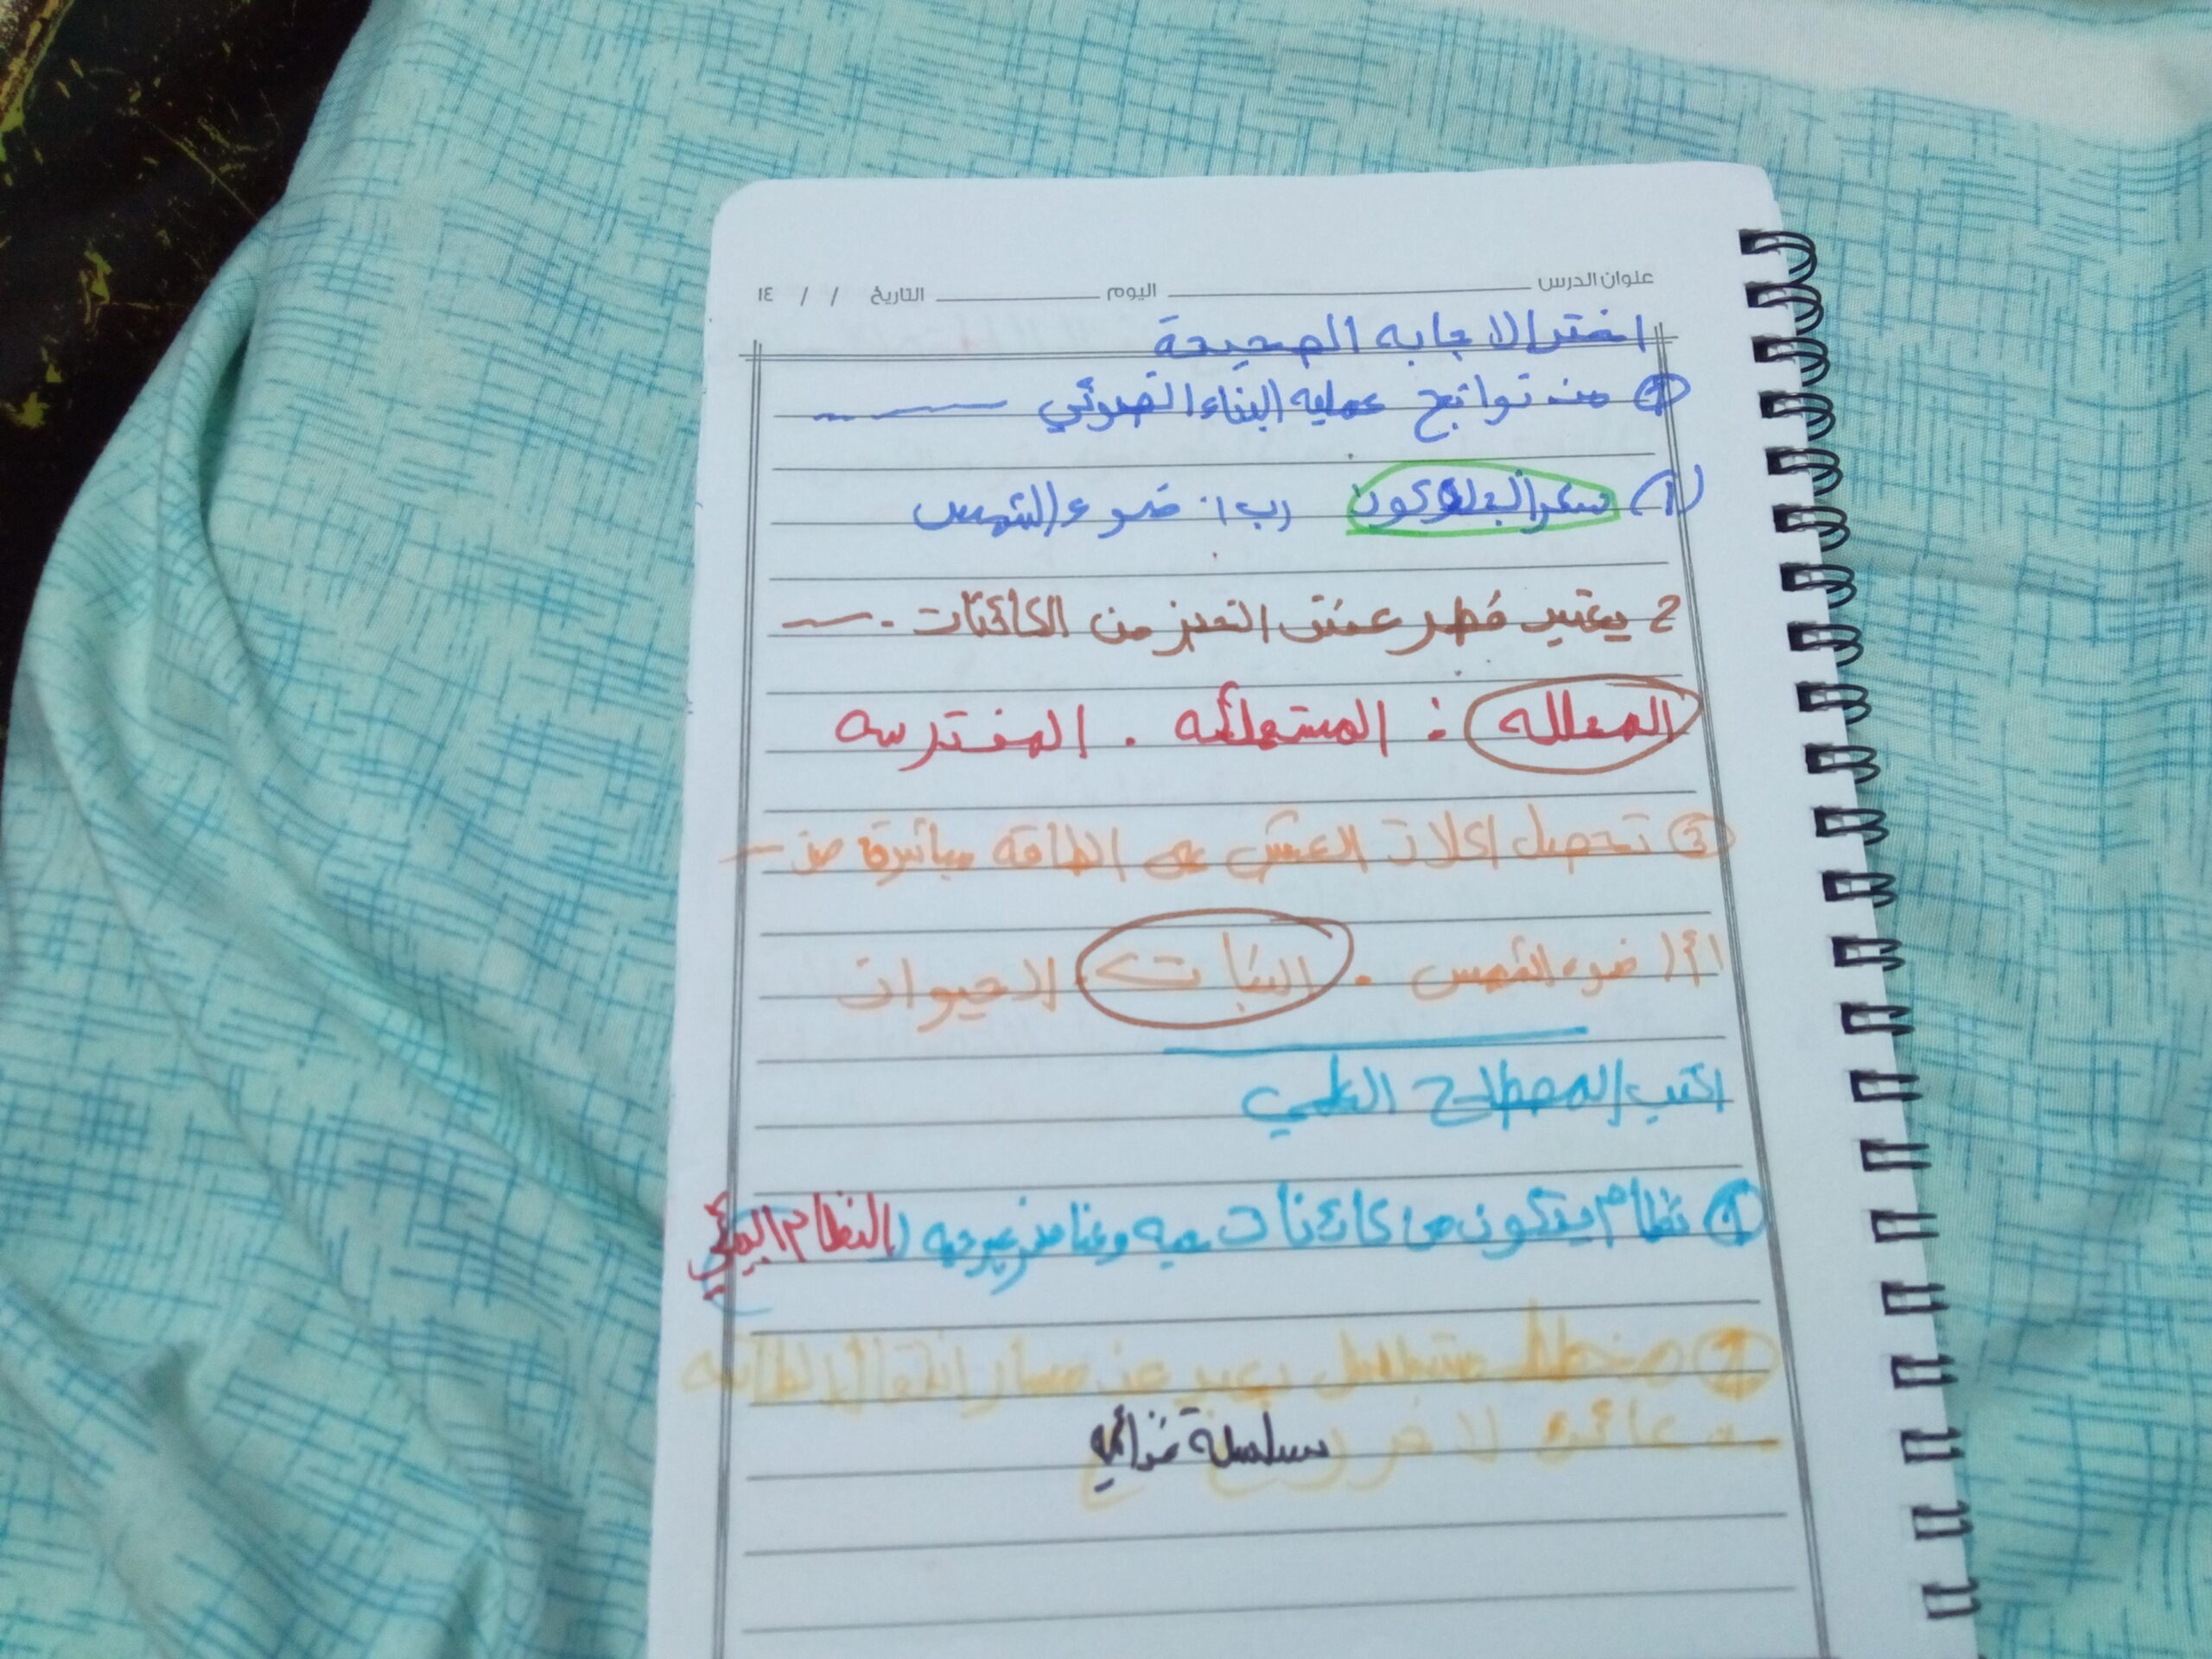 عنوان الدرس اليوم التاريخ / / ١٤
اختر الاجابه الصحيحة
① من نواتج عمليه البناء الضوئي
(أ) سكر الجلوكوز (ب) ضوء الشمس
2 يعتبر فطر عفن الخبز من الكائنات
المحلله : المستهلكه . المفترسه
③ تحصل اكلات العشب على الطاقه مباشرة من
(أ) ضوء الشمس . النبات . الحيوات
اكتب المصطلح العلمي
① نظام يتكون من كائنات حيه وعناصر غير حيه (النظام البيئي)
② مخطط متسلسل يعبر عن مسار انتقال الطاقه
من كائن لاخر سلسلة غذائي